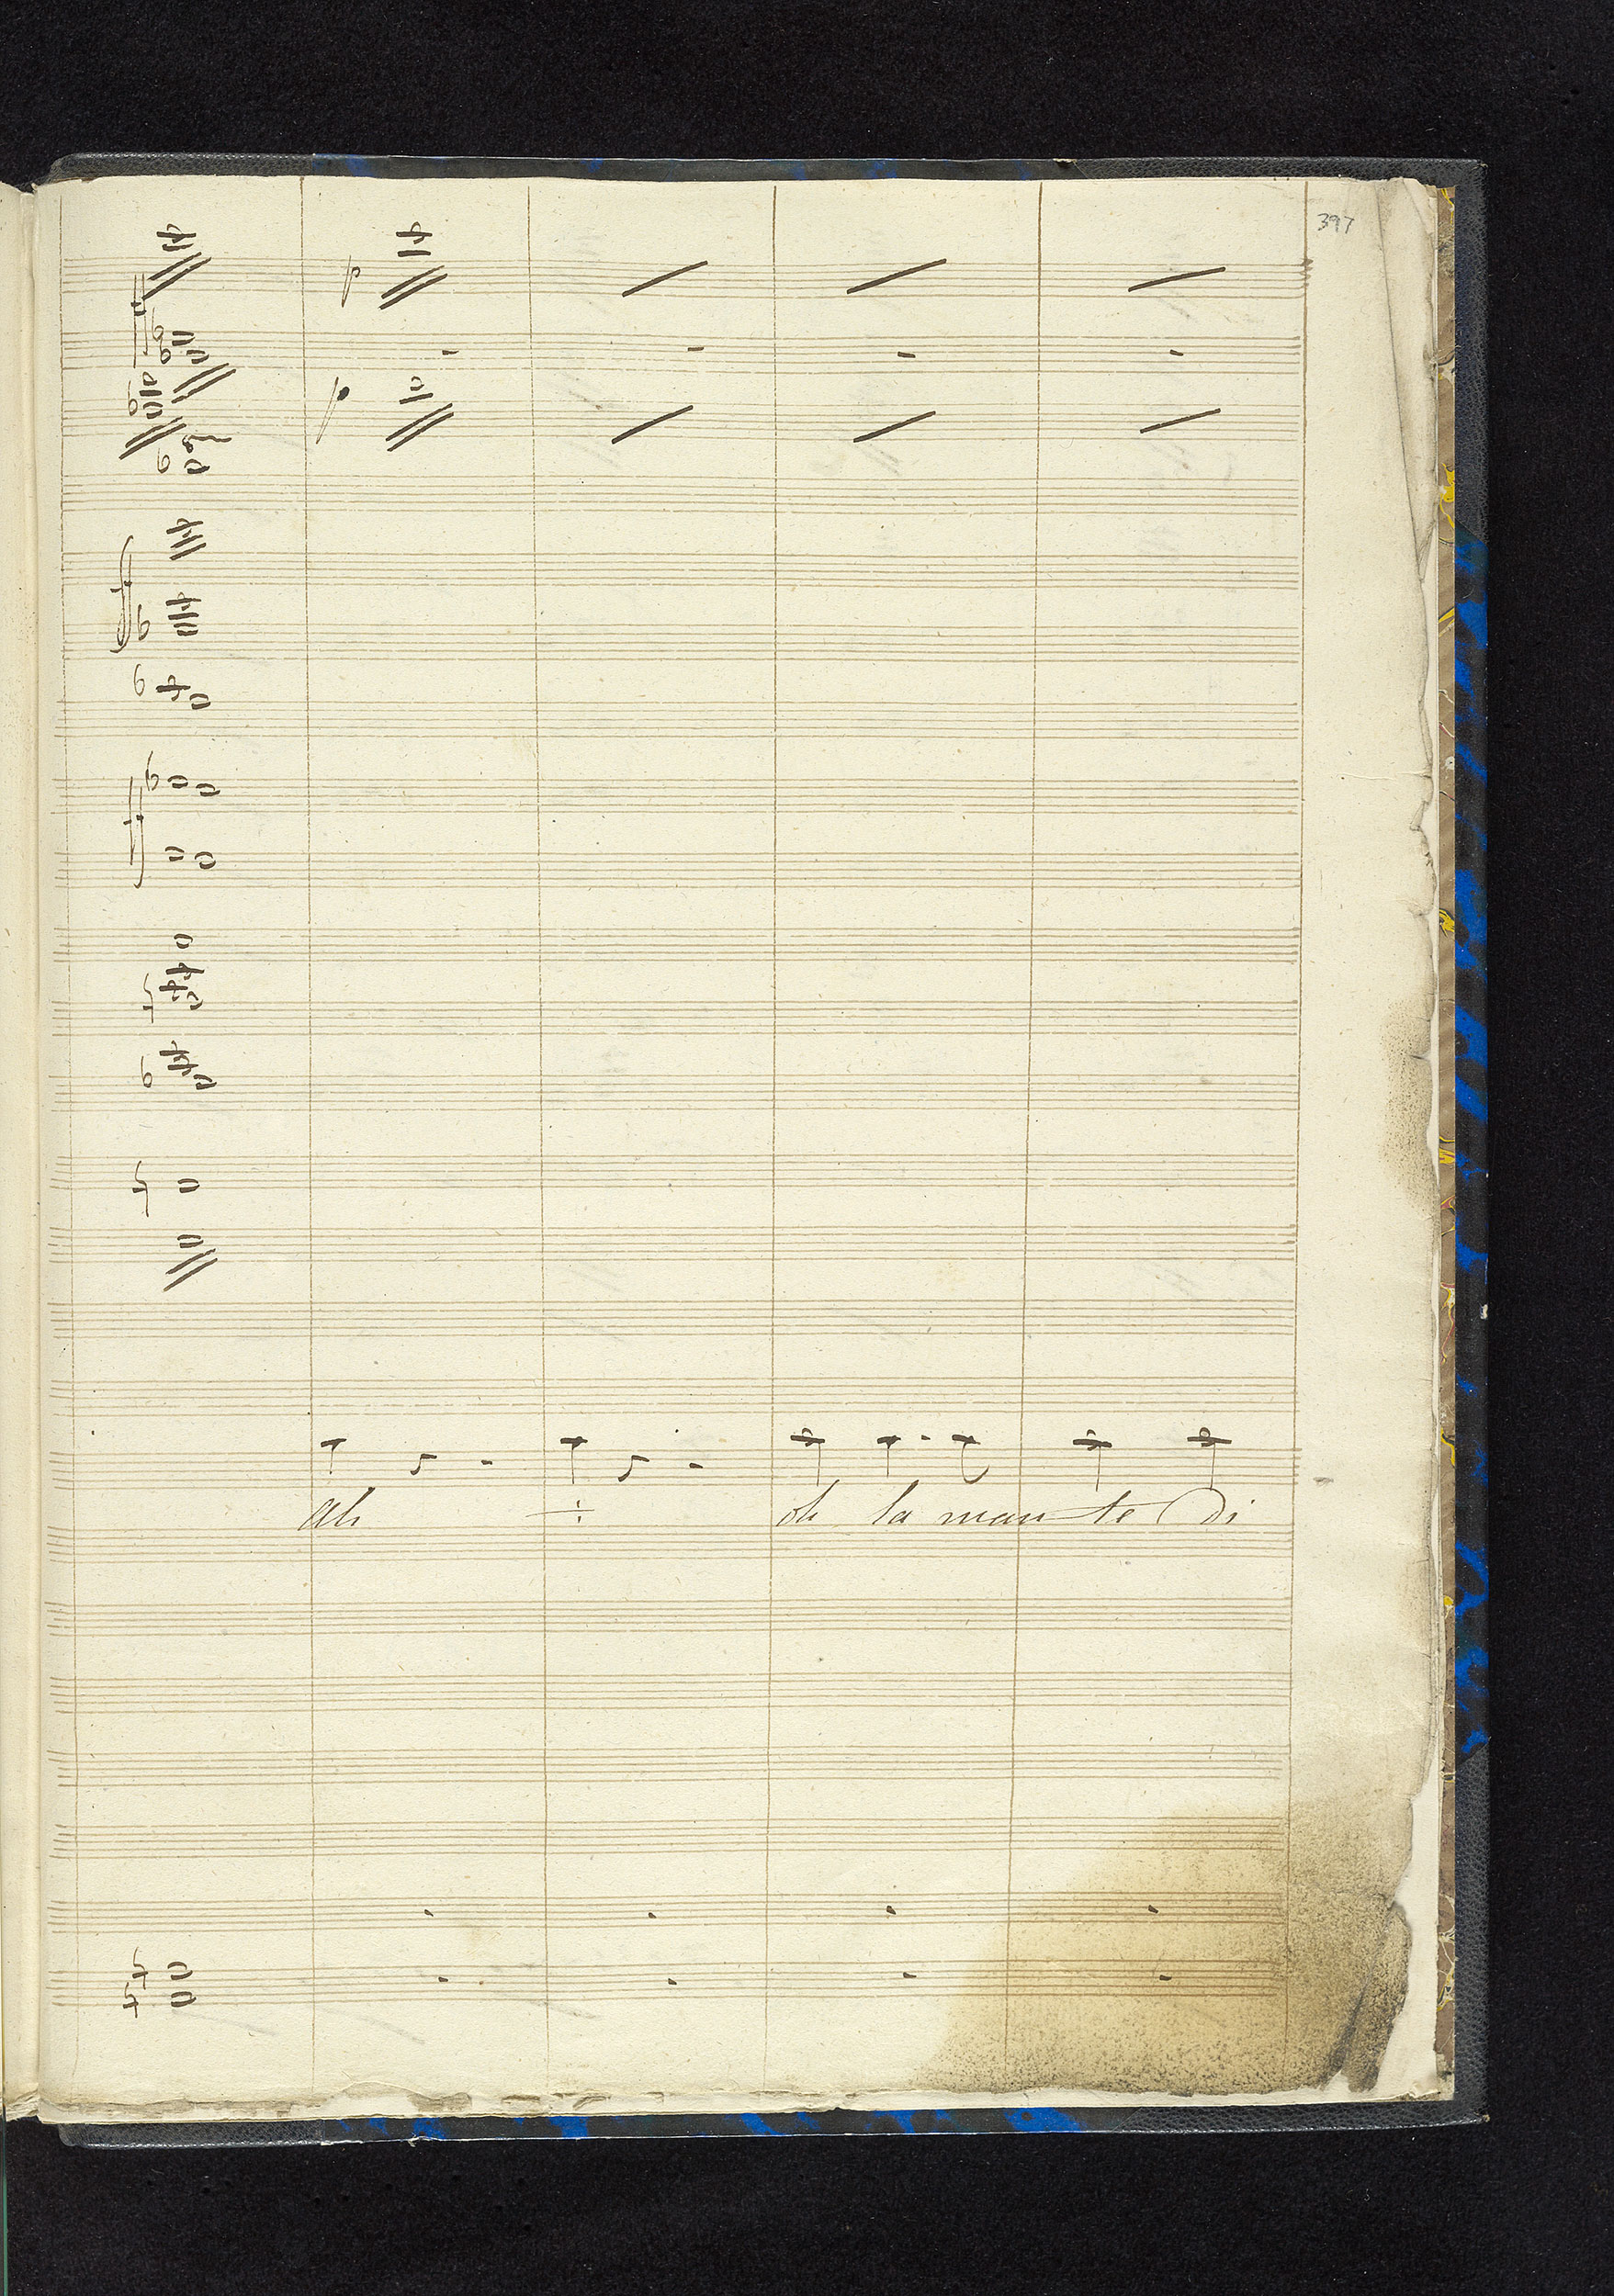 397
p
p
ah ÷ oh la man te Di